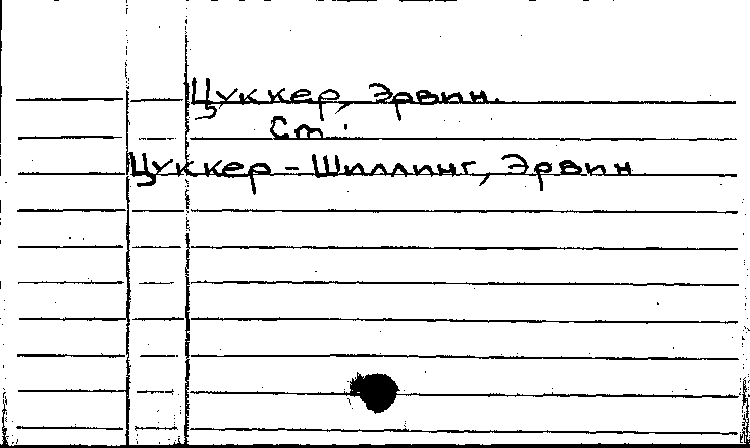 Цуккер, Эрвин.
Ст.:
Цуккер-Шиллинг, Эрвин